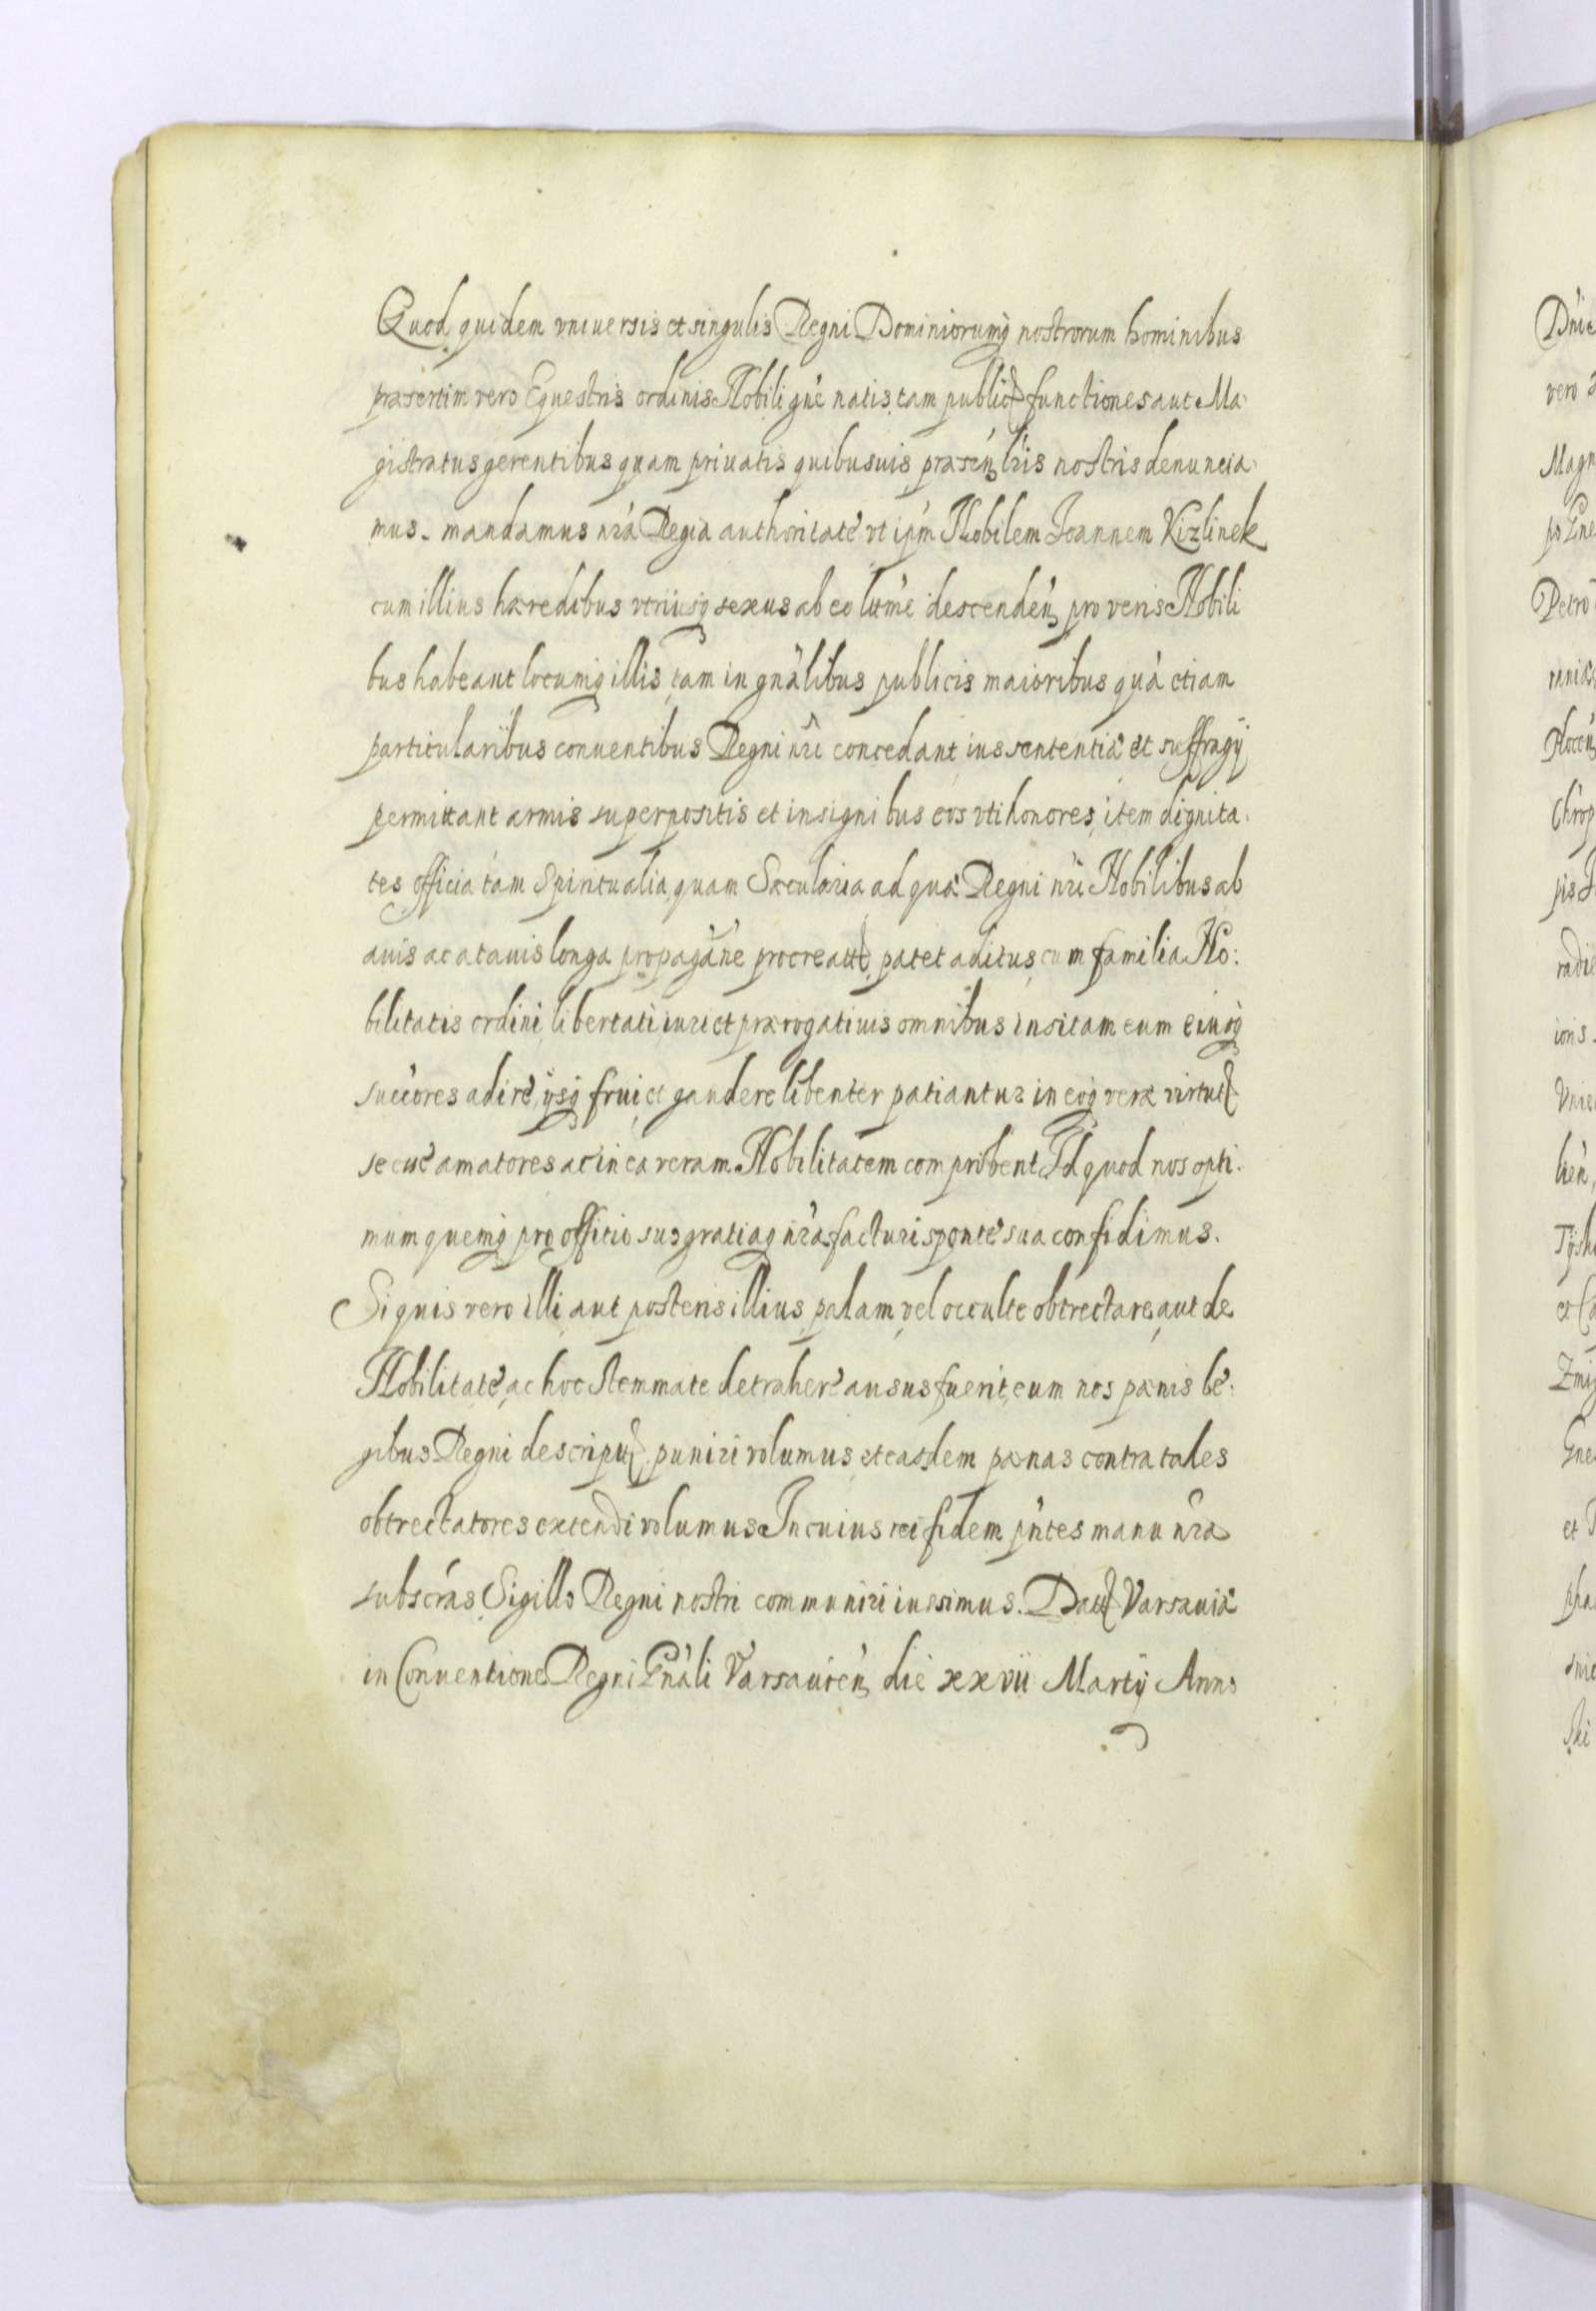 Quod quidem vniuersis et singulis Regni Dominiorumq́ nostrorum hominibus
præsertim vero Equestris ordinis Nobili gne natis, tam publicas functiones aut Ma
gistratus gerentibus quam priuatis quibusuis præsen lris nostris denuncia
mus. mandamus nra Regia authoritate vt ipm Nobilem Joannem Kizlinek
cum illius hæredibus vtriusq sexus ab eo ltme descenden pro veris Nobili
bus habeant locumq illis tam in gnalibus publicis maioribus qua etiam
particularibus conuentibus Regni nri concedant ius sententiæ et suffragij
permittant armis superpositis et insignibus eos vti honores, item dignita
tes officia tam Spiritualia quam Sæcularia ad quæ Regni nri Nobilibus ab
auis ac atauis longa propagane procreatis patet aditus cum familia No:
bilitatis ordini libertati iuri et prærogatiuis omnibus insitam eum eiusq
succores adire, ijsq frui et gaudere libenter patiantur in eoq veræ virtutis
se esse amatores ac in ea veram Nobilitatem comprobent Id quod nos opti
mum quemq pro offitio suo gratiaq nra facturi sponte sua confidimus.
Si quis vero illi aut posteris illius palam vel occulte obtrectare aut de
Nobilitate, ac hoc stemmate detrahere ausus fuerit, eum nos pænis le:
gibus Regni descriptis puniri volumus et easdem pænas contra tales
obtrectatores extendi volumus In cuius rei fidem pntes manu nra
subscras Sigillo Regni nostri communiri iussimus. Datt Varsauiæ
in Conuentione Regni Gnali Varsauien die xxvii Martij Anno